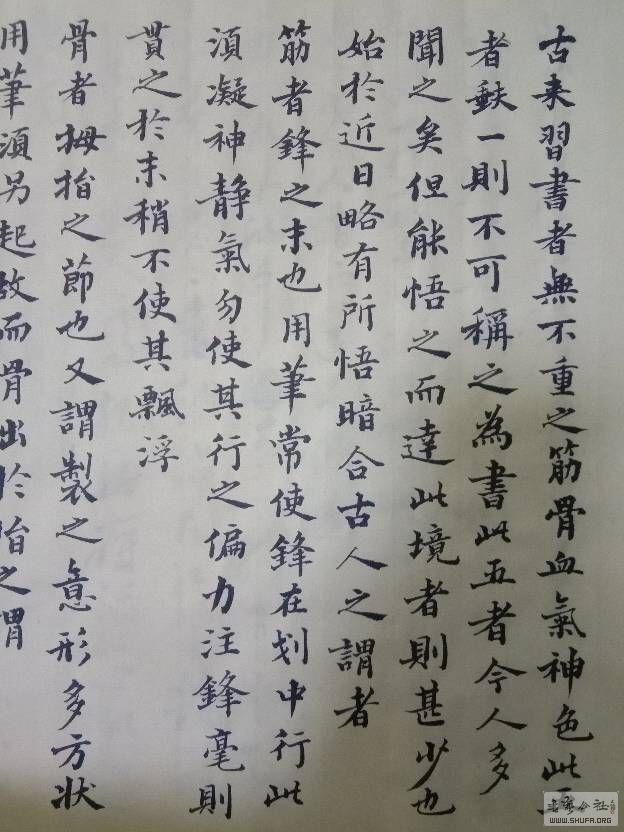 古来習書者無不重之筋骨血氣神色此
者缺一則不可稱之為書此五者今人多
聞之矣但能悟之而達此境者則甚少也
始於近日略有所悟暗合古人之謂者
筋者鋒之末也用筆常使鋒在划中行此
須凝神静氣勿使其行之偏力注鋒毫則
貫之於末稍不使其飄浮
骨者拇指之節也又謂製之意形多方状
用筆須另起故而骨出於指之謂
WWW.SHUFA.ORG